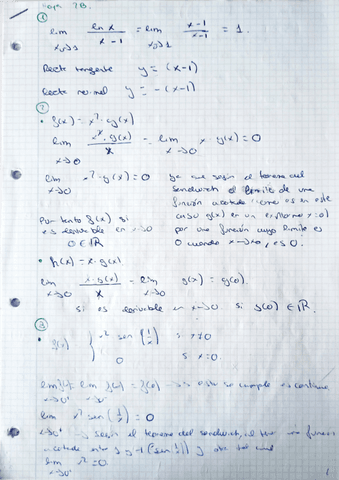 Hoja 7B.
①
lim ln x / x-1 = lim x-1 / x-1 = 1.
x→1 x→1
Recta tangente y = (x-1)
Recta normal y = -(x-1)
②
• f(x) = x² · g(x)
lim x² · g(x) / x = lim x g(x) = 0
x→0 x→0
lim x² · g(x) = 0 ya que según el teorema del
x→0 sandwich el límite de una
función acotada como es en este
caso g(x) en un entorno x=0)
por una función cuyo límite es
0 cuando x→0, es 0.
Por tanto f(x) si
es derivable en x→0
0 ∈ ℝ
• h(x) = x · g(x)
lim x · g(x) / x = lim g(x) = g(0).
x→0 x→0
si es derivable en x→0 si g(0) ∈ ℝ.
③
f(x) { x² sen (1/x) si x≠0
0 si x=0.
lim f(x) = lim f(x) = f(0) → si esto se cumple es continua
x→0⁺ x→0⁻
lim x² sen (1/x) = 0
x→0⁺ según el teorema del sandwich, el función
acotada entre 1 y -1 (sen 1/x) y
lim x² = 0.
x→0⁺
1